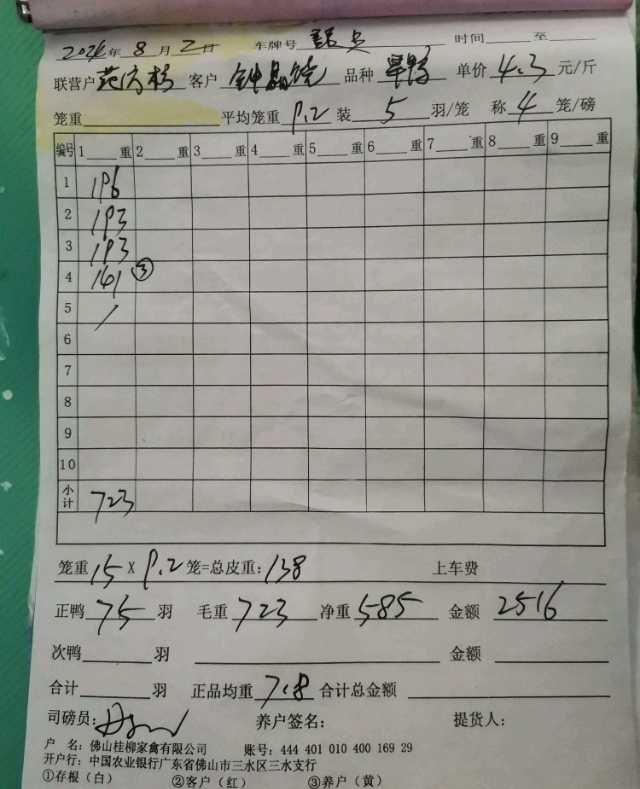 2024年 8月 2日 车牌号 时间 至
联营户 客户 品种 单价 4.3 元/斤
笼重 平均笼重 9.2 装 5 羽/笼 称 4 笼/磅
编号 1 重 2 重 3 重 4 重 5 重 6 重 7 重 8 重 9 重
1 196
2 193
3 193
4 141 ③
5 /
6
7
8
9
10
小计 723
笼重 15 X 9.2 笼=总皮重: 138 上车费
正鸭 75 羽 毛重 723 净重 585 金额 2516
次鸭 羽 金额
合计 羽 正品均重 7.8 合计总金额
司磅员: 养户签名: 提货人:
户 名: 佛山桂柳家禽有限公司 账号: 444 401 010 400 169 29
开户行: 中国农业银行广东省佛山市三水区三水支行
①存根(白) ②客户(红) ③养户(黄)